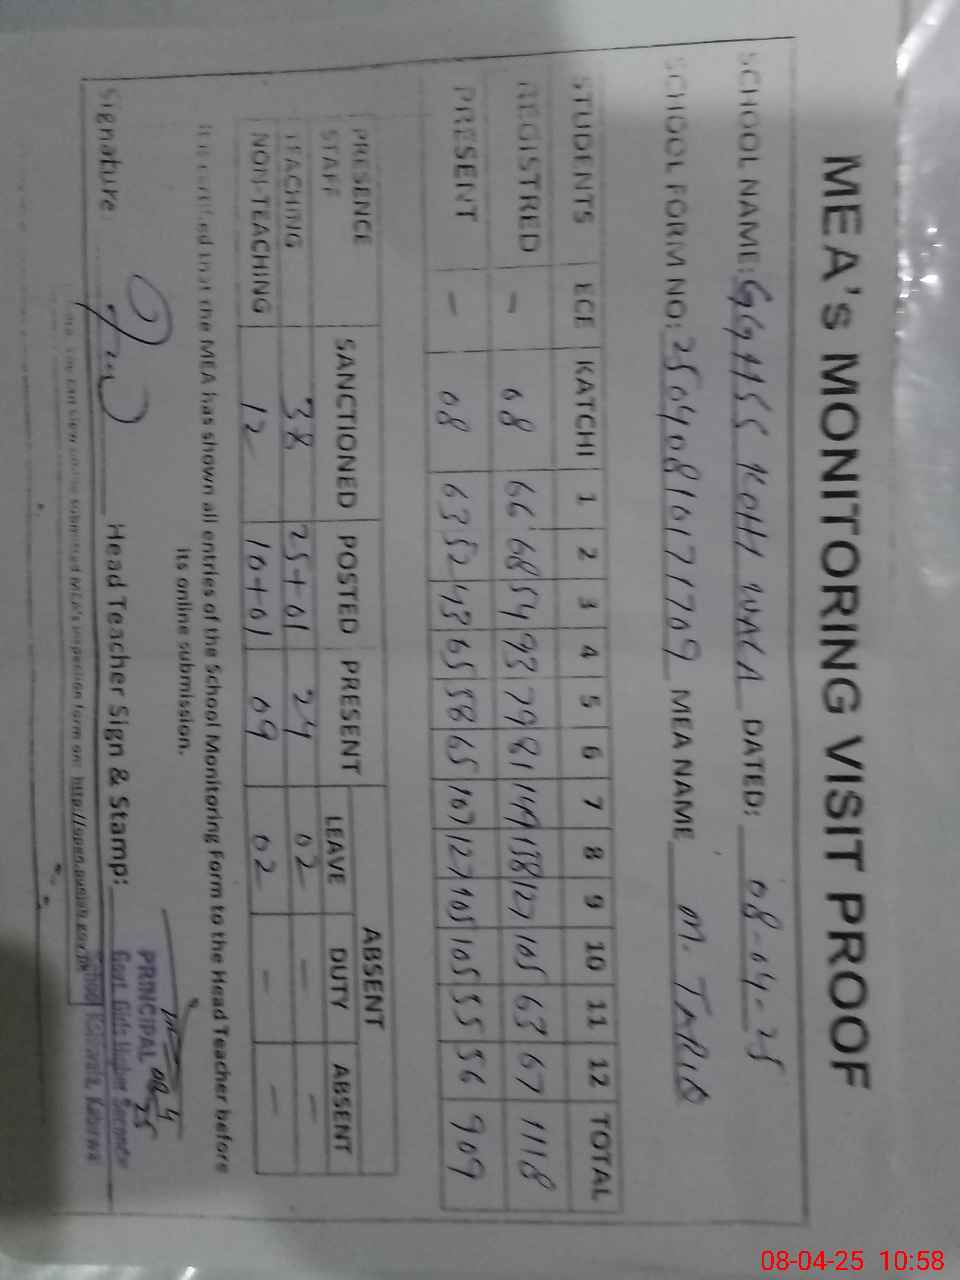 MEA's MONITORING VISIT PROOF
SCHOOL NAME: GGHSS KOHI WALA DATED: 08-04-25
SCHOOL FORM NO: 25040810171709 MEA NAME M. TARIQ
STUDENTS ECE KATCHI 1 2 3 4 5 6 7 8 9 10 11 12 TOTAL
REGISTRED - 08 66 68 54 93 79 81 149 158 127 105 63 67 1118
PRESENT - 08 63 52 43 65 58 65 107 127 105 105 55 56 909
ABSENT
PRESENCE STAFF SANCTIONED POSTED PRESENT LEAVE DUTY ABSENT
TEACHING 38 25+01 24 02 - -
NON-TEACHING 12 10+01 09 02 - -
It is certified that the MEA has shown all entries of the School Monitoring Form to the Head Teacher before
its online submission.
Signature Head Teacher Sign & Stamp:
PRINCIPAL
Govt. Girls Higher Secondary
School
You can view online submitted MEA's inspection form on: http://open.punjab.gov.pk
08-04-25 10:58